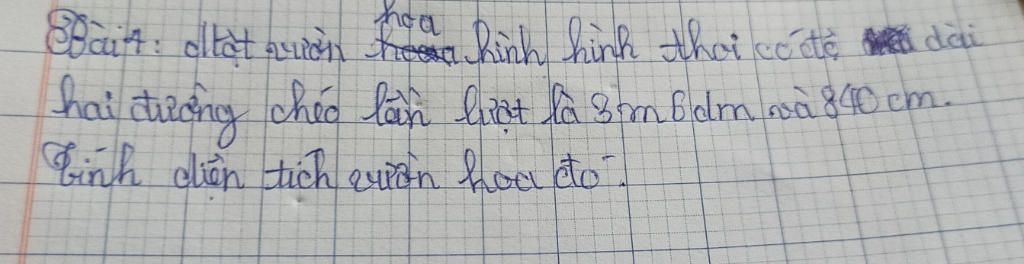 Bài 4: Một vườn hoa hình hình thoi có độ dài
hai đường chéo lần lượt là 3m 8dm và 840 cm.
Tính diện tích vườn hoa đó.